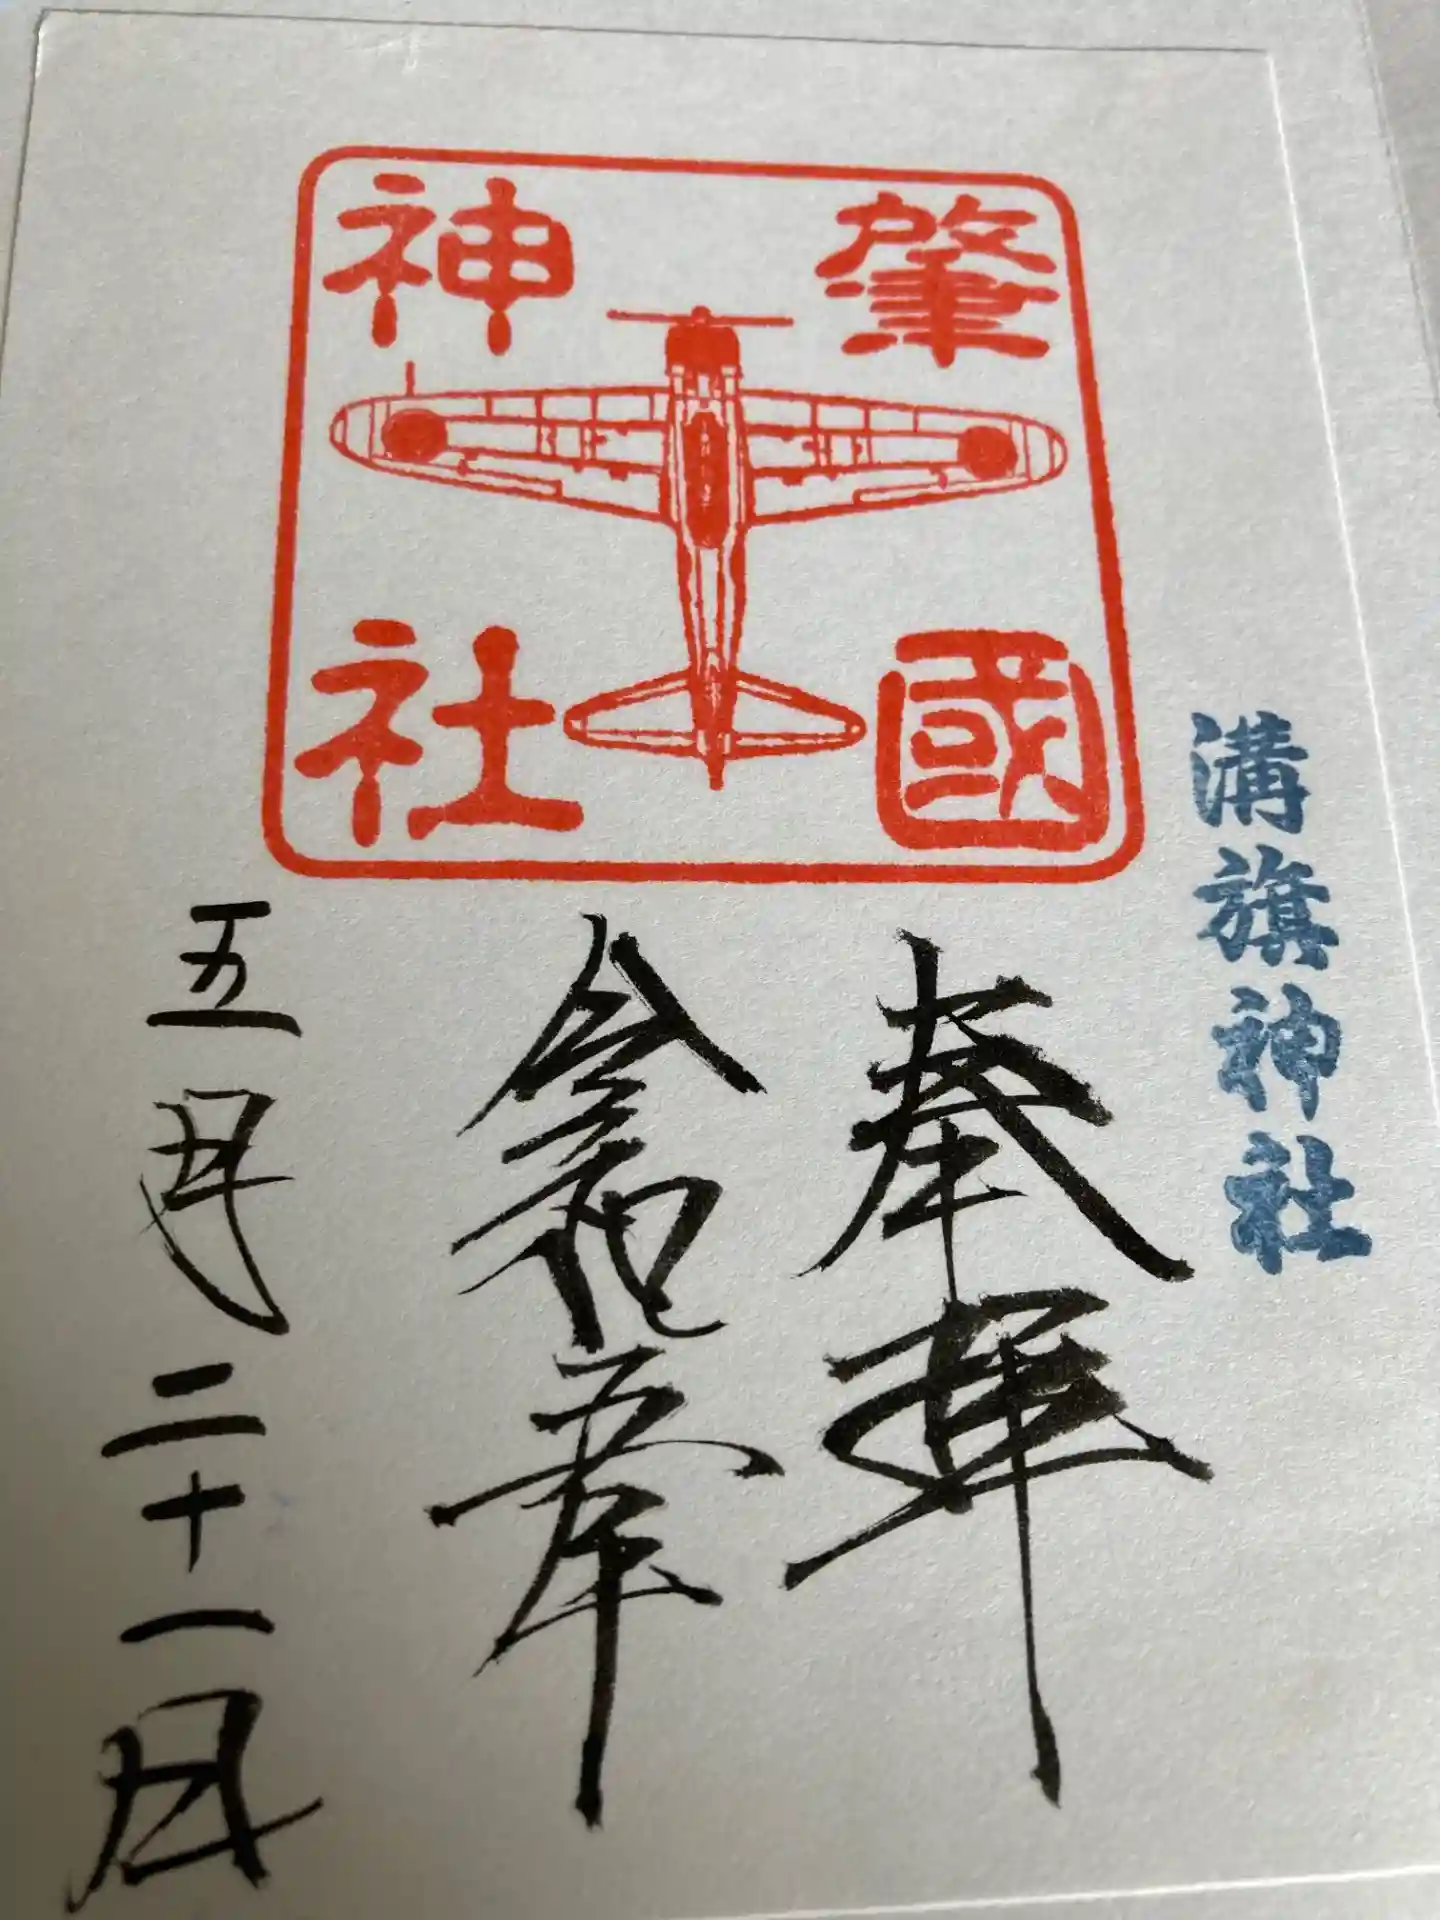 肇國
神社
溝旗神社
奉拝
令和五年
五月二十一日